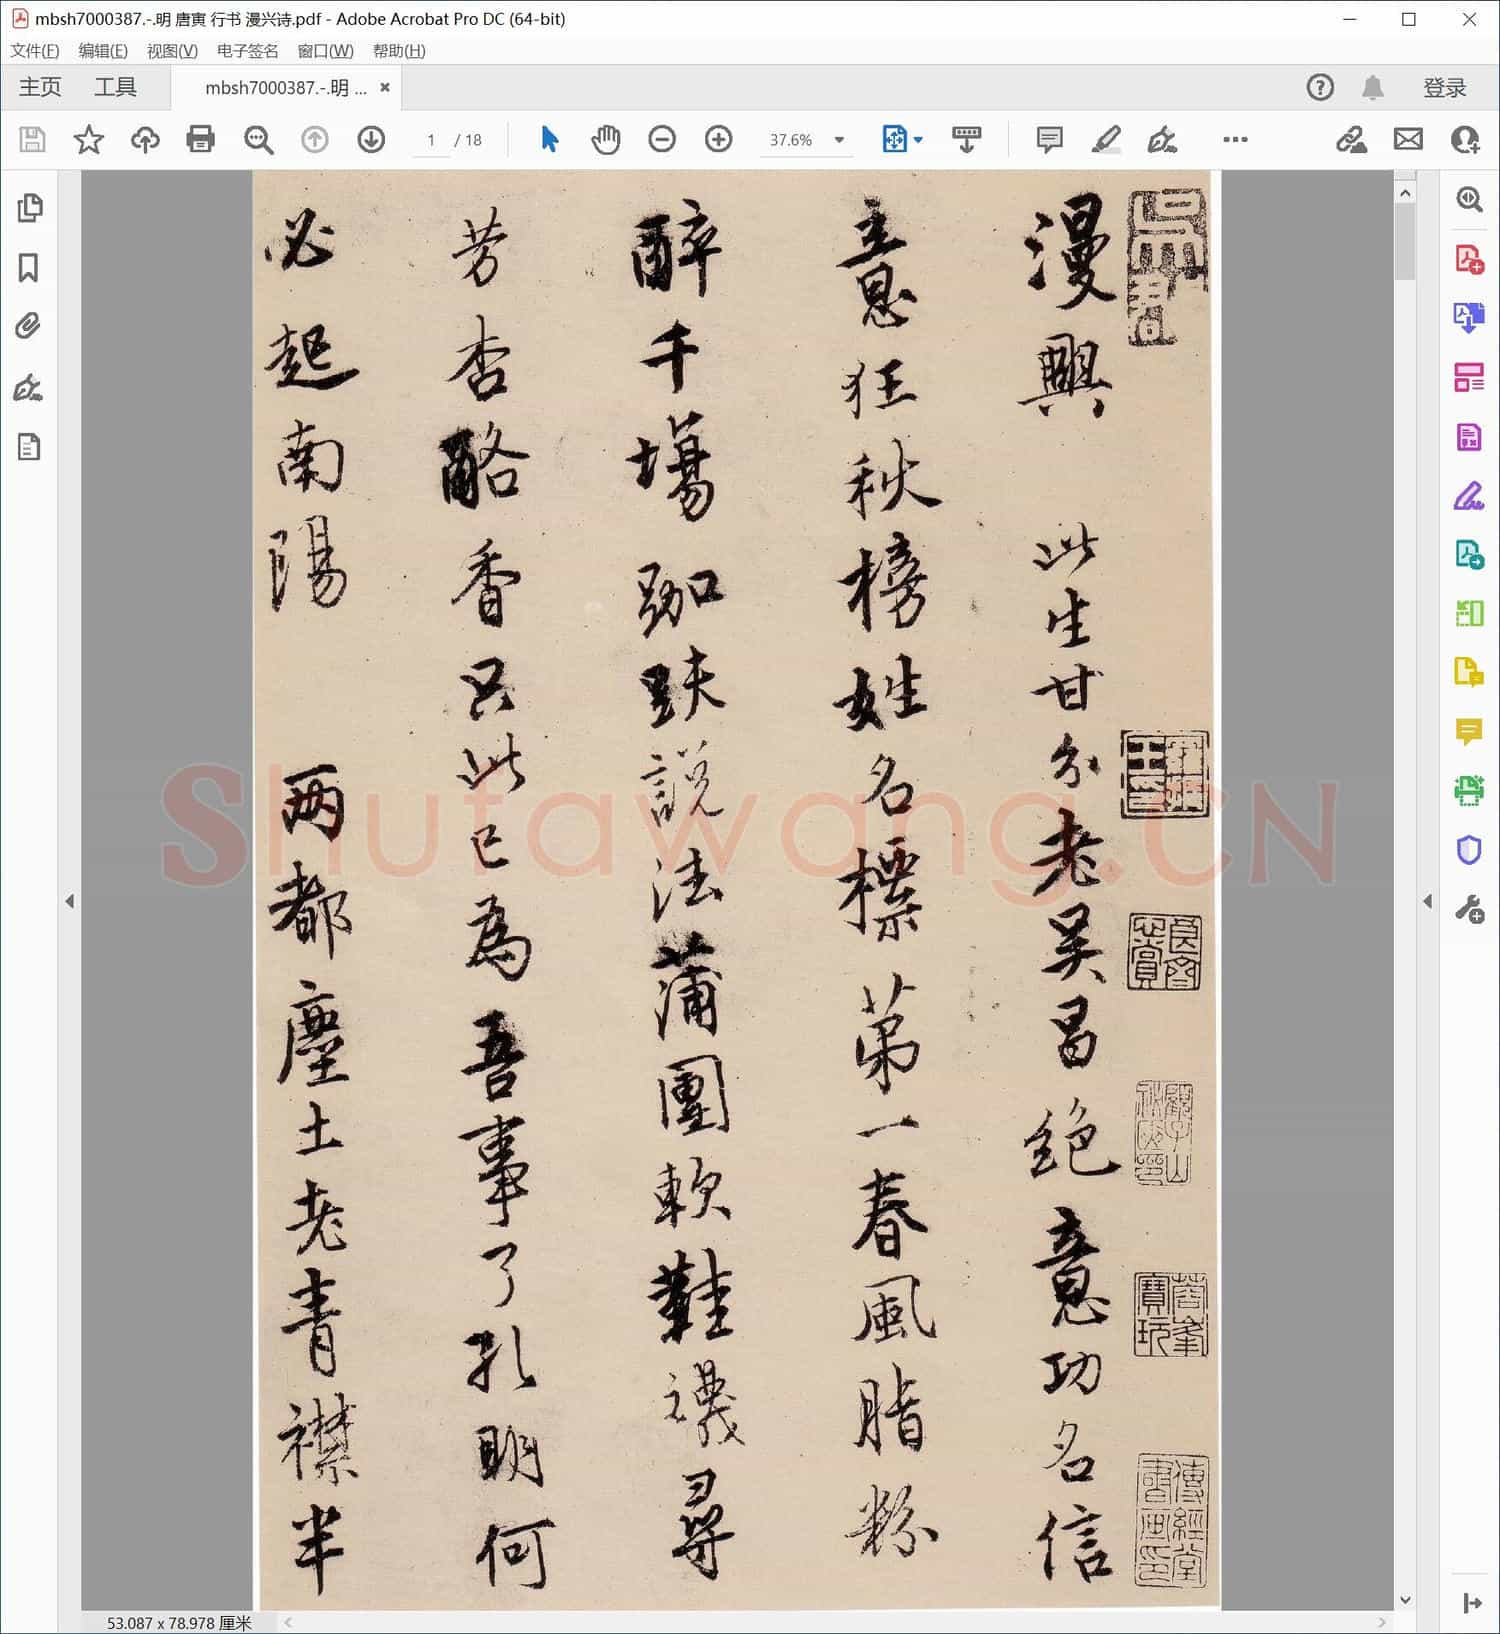 mbsh7000387.-.明 唐寅 行书 漫兴诗.pdf - Adobe Acrobat Pro DC (64-bit)
文件(F) 编辑(E) 视图(V) 电子签名 窗口(W) 帮助(H)
主页 工具 mbsh7000387.-.明 ... 登录
1 / 18 37.6%
漫興 此生甘分老吴昌絶意功名信
意狂秋榜姓名標苐一春風脂粉
醉千場跏趺説法蒲團軟鞋襪尋
芳杏酪香只此已為吾事了孔明何
必起南陽 两都塵土老青襟半
Shufawang.CN
蓉峯寶玩
傳經堂書画印
53.087 x 78.978 厘米